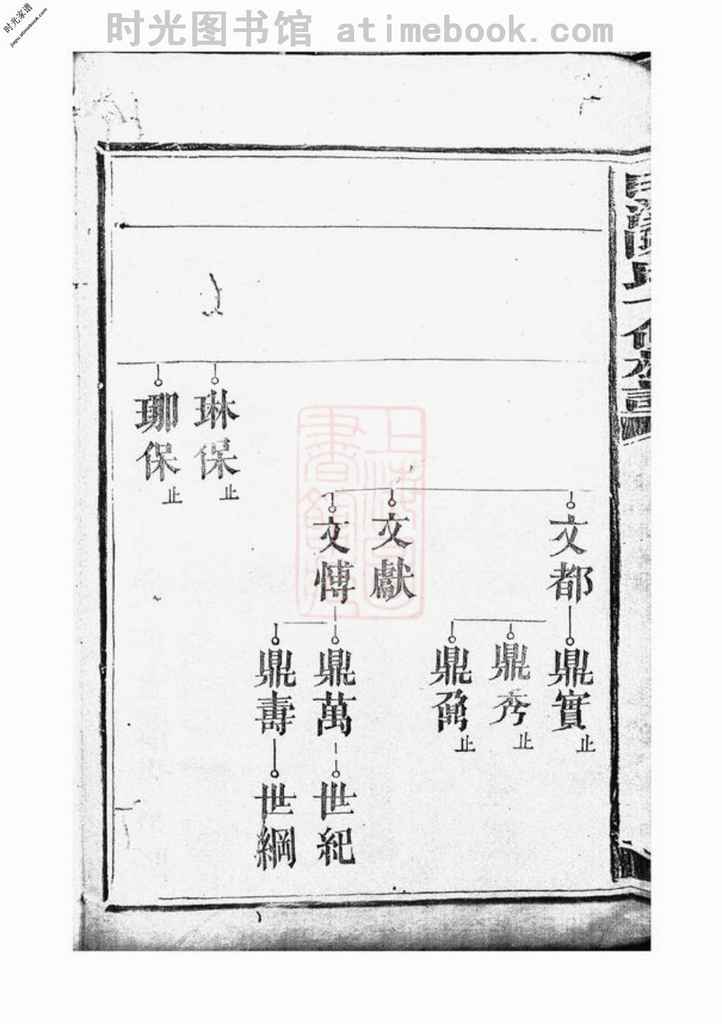 时光图书馆 atimebook.com
时光家谱
jiapu.atimebook.com
文都
鼎實止
鼎秀止
止
文獻
文博
鼎萬
世紀
鼎壽
世綱
琳保止
珋保止